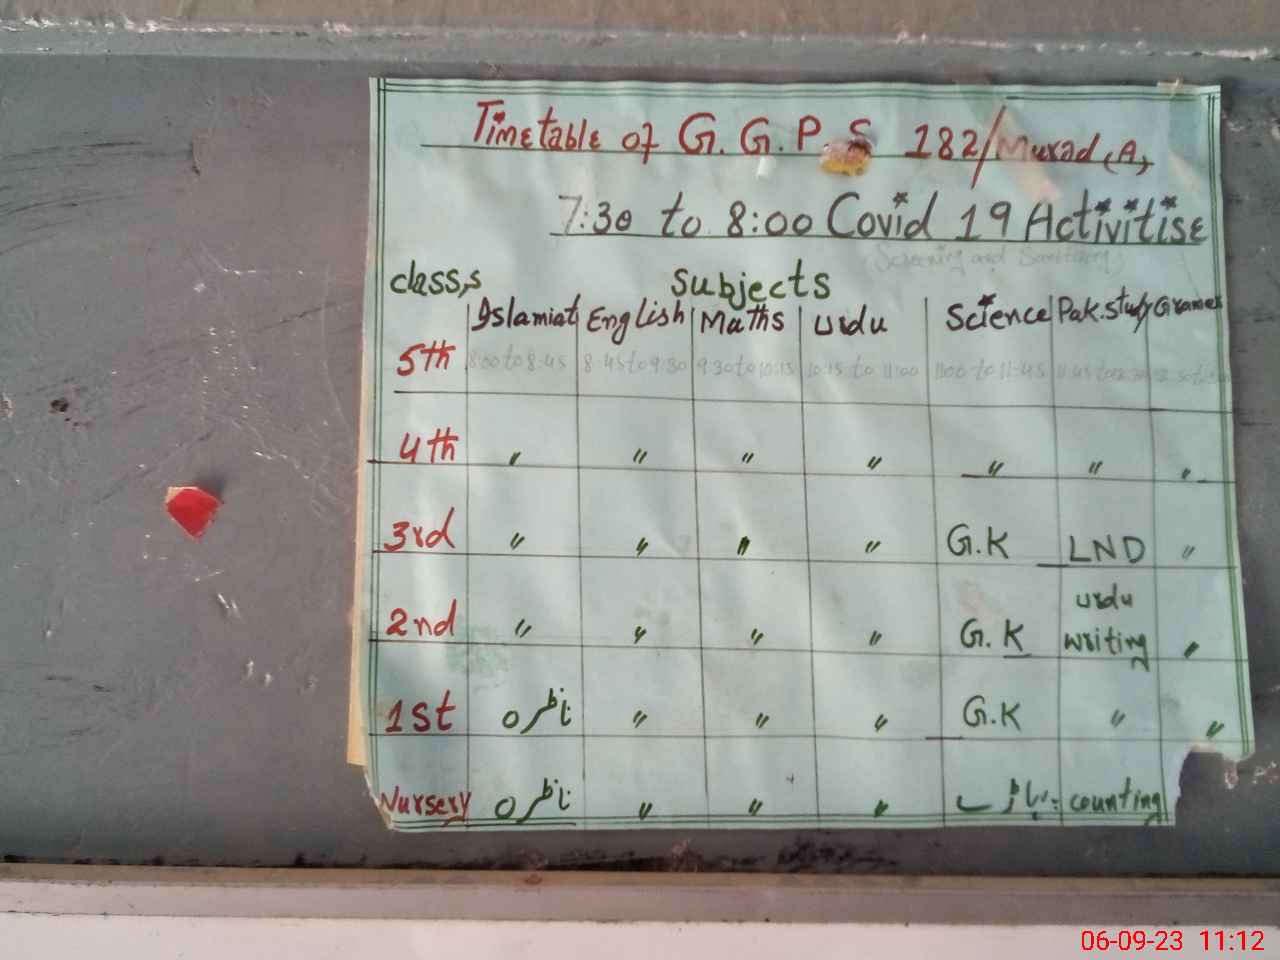 Timetable of G.G.P.S 182/Murad(A)
7:30 to 8:00 Covid 19 Activitise
(Screening and Sanitizing)
class,s Subjects
Islamiat English Maths Urdu Science Pak.study Gramer
5th 8:00 to 8:45 8:45 to 9:30 9:30 to 10:15 10:15 to 11:00 11:00 to 11:45
4th " " " " " " "
3rd " " " " G.K LND "
2nd " " " " G.K urdu writing "
1st ناظرہ " " " G.K " "
Nursery ناظرہ " " " counting
06-09-23 11:12